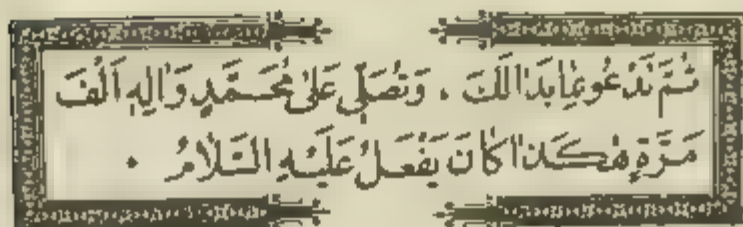 ثُمَّ تَدْعُو بِمَا بَدَا لَكَ ، وَتُصَلِّي عَلَىٰ مُحَمَّدٍ وَاٰلِهِ اَلْفَ
مَرَّةٍ هٰكَذَا كَانَ يَفْعَلُ عَلَيْهِ السَّلَامُ ٠